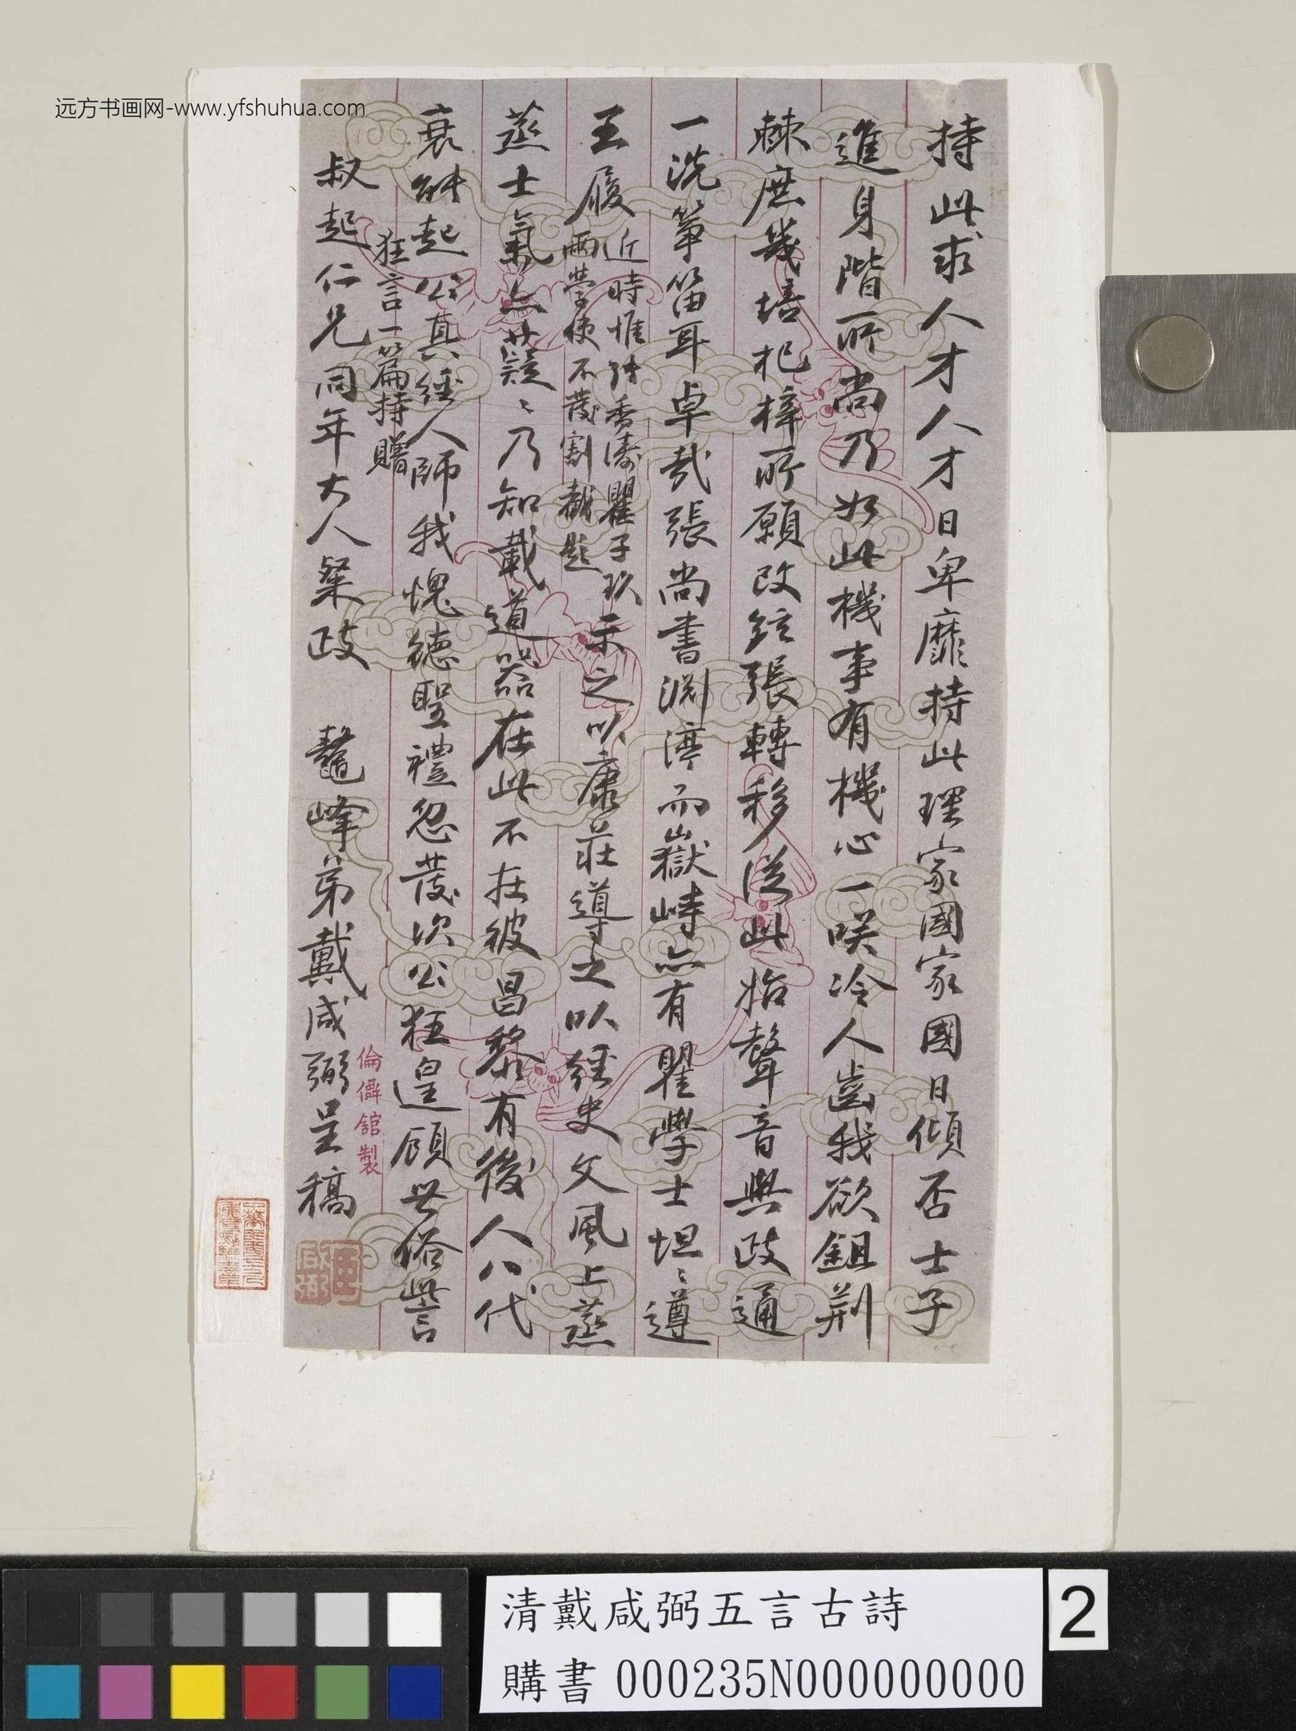 远方书画网-www.yfshuhua.com
持此求人才人才日卑靡持此理家國家國日傾否士子
進身階所尚乃如此機事有機心一咲冷人齒我欲鉏荆
棘庶幾培杞梓所願改鉉張轉移從此始聲音與政通
一洗箏笛耳卓哉張尚書淵渟而嶽峙亦有瞿學士坦〻遵
王履近時惟張香濤瞿子玖
兩學使不茂割截題示之以康莊導之以經史文風上蒸
蒸士氣亦薿〻乃知載道器在此不在彼昌黎有後人八代
衰能起公真經人師我愧德聖禮忽發次公狂遑顧世俗訾
狂言一篇持贈
叔起仁兄同年大人粲政 鼇峰弟戴咸弼呈稿
倫儕舘製
清戴咸弼五言古詩
購書 000235N000000000
2